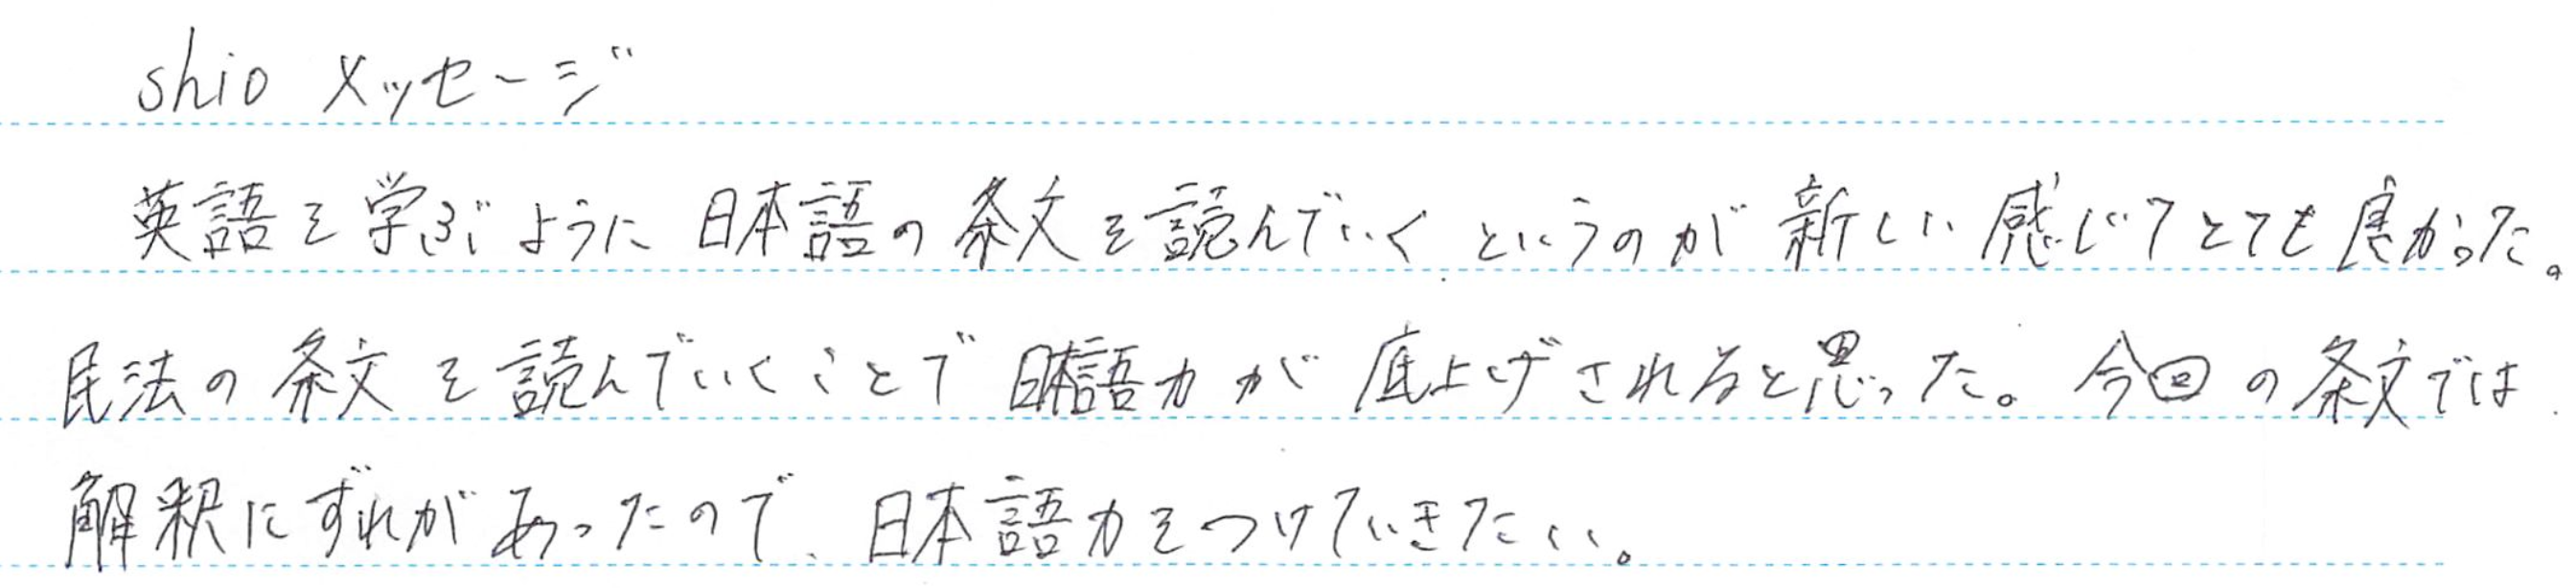 shio メッセージ
英語を学ぶように日本語の条文を読んでいくというのが新しい感じでとても良かった。
民法の条文を読んでいくことで日本語力が底上げされると思った。今回の条文では
解釈にずれがあったので、日本語力をつけていきたい。